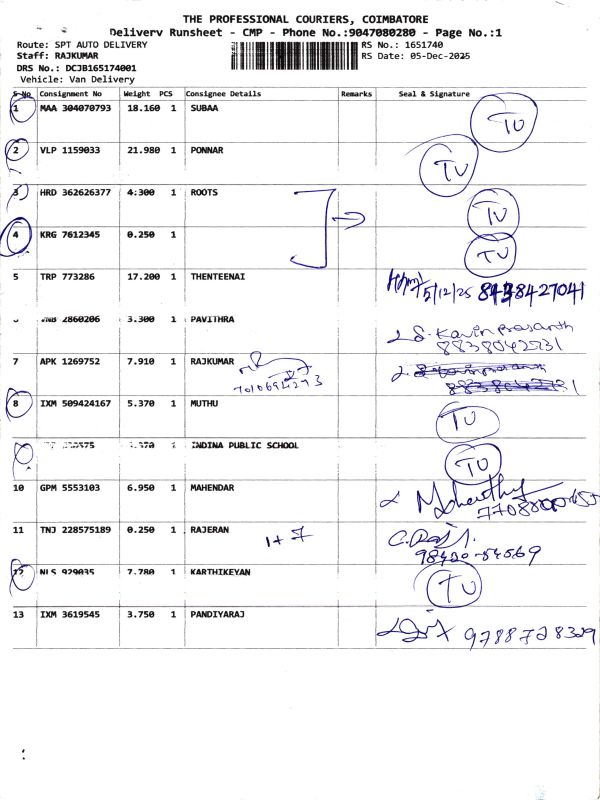 THE PROFESSIONAL COURIERS, COIMBATORE
Delivery Runsheet - CMP - Phone No.:9047080280 - Page No.:1
Route: SPT AUTO DELIVERY RS No.: 1651740
Staff: RAJKUMAR RS Date: 05-Dec-2025
DRS No.: DCJB165174001
Vehicle: Van Delivery
S No Consignment No Weight PCS Consignee Details Remarks Seal & Signature
1 MAA 304070793 18.160 1 SUBAA TU
2 VLP 1159033 21.980 1 PONNAR TU
3 HRD 362626377 4.300 1 ROOTS TU
4 KRG 7612345 0.250 1 TU
5 TRP 773286 17.200 1 THENTEENAI 5/12/25 8438427041
2860206 3.300 1 PAVITHRA S. Kavin prasanth
8838042731
7 APK 1269752 7.910 1 RAJKUMAR
7010694273
8 IXM 509424167 5.370 1 MUTHU TU
1 INDINA PUBLIC SCHOOL TU
10 GPM 5553103 6.950 1 MAHENDAR
11 TNJ 228575189 0.250 1 RAJERAN 1+7 C. Raj
98420-54569
12 NLS 929035 7.780 1 KARTHIKEYAN TU
13 IXM 3619545 3.750 1 PANDIYARAJ 9788728329